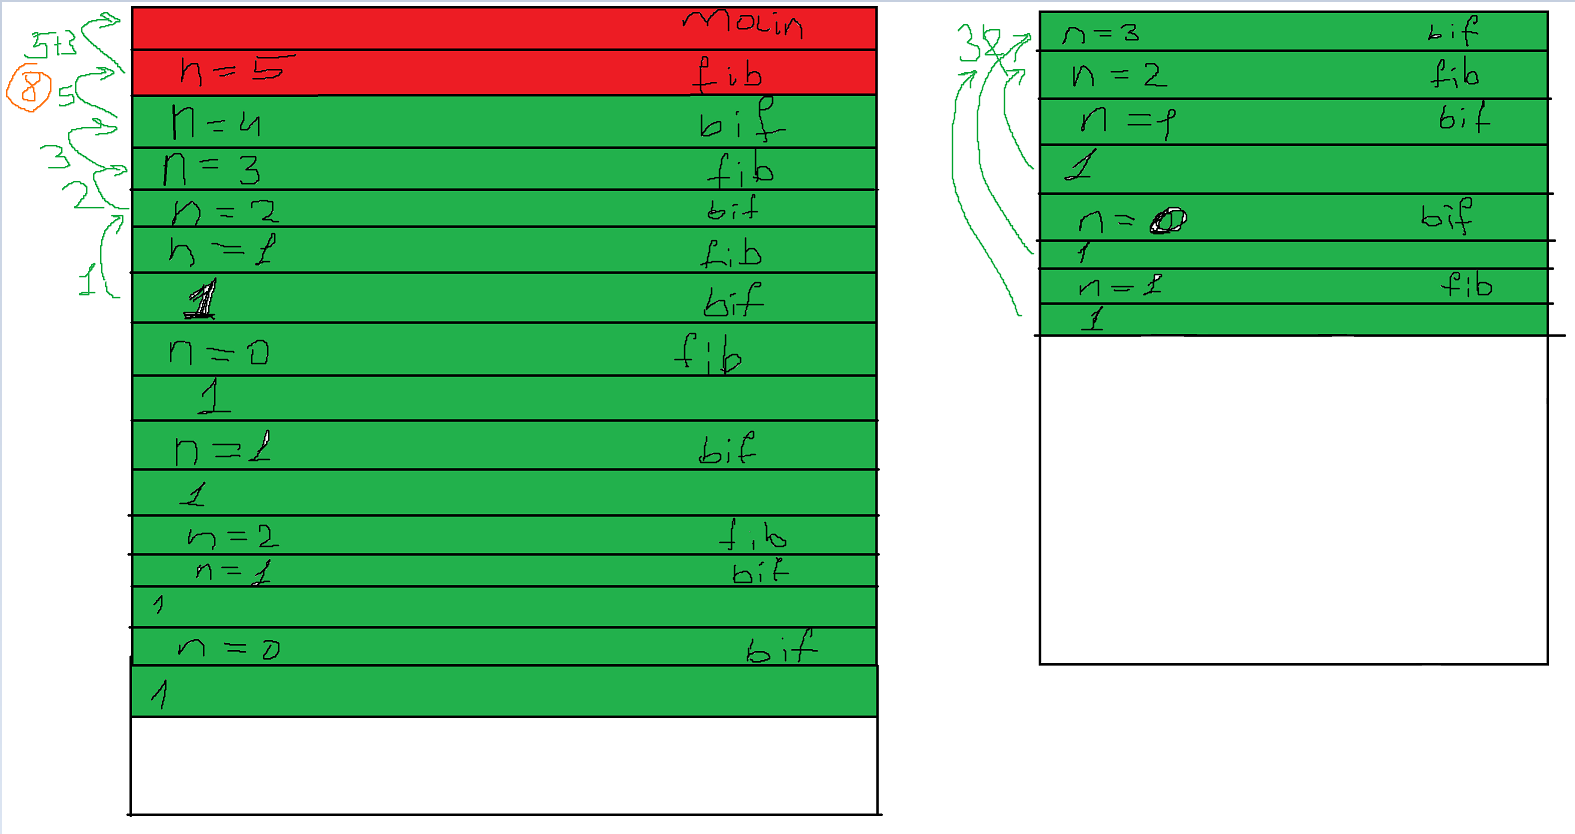 main
5+3
n = 5 fib
8
5
n = 4 bif
3
n = 3 fib
2
n = 2 bif
n = 1 fib
1
1 bif
n = 0 fib
1
n = 1 bif
1
n = 2 fib
n = 1 bif
1
n = 0 bif
1
n = 3 bif
3
n = 2 fib
n = 1 bif
1
n = 0 bif
1
n = 1 fib
1